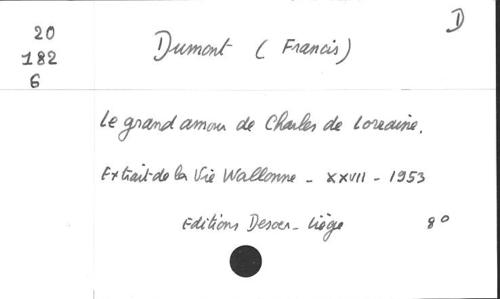 D
20
182
6
Dumont (Francis)
Le grand amour de Charles de Lorraine.
Extrait de la Vie Wallonne - XXVII - 1953
Editions Desoer - Liège 8°